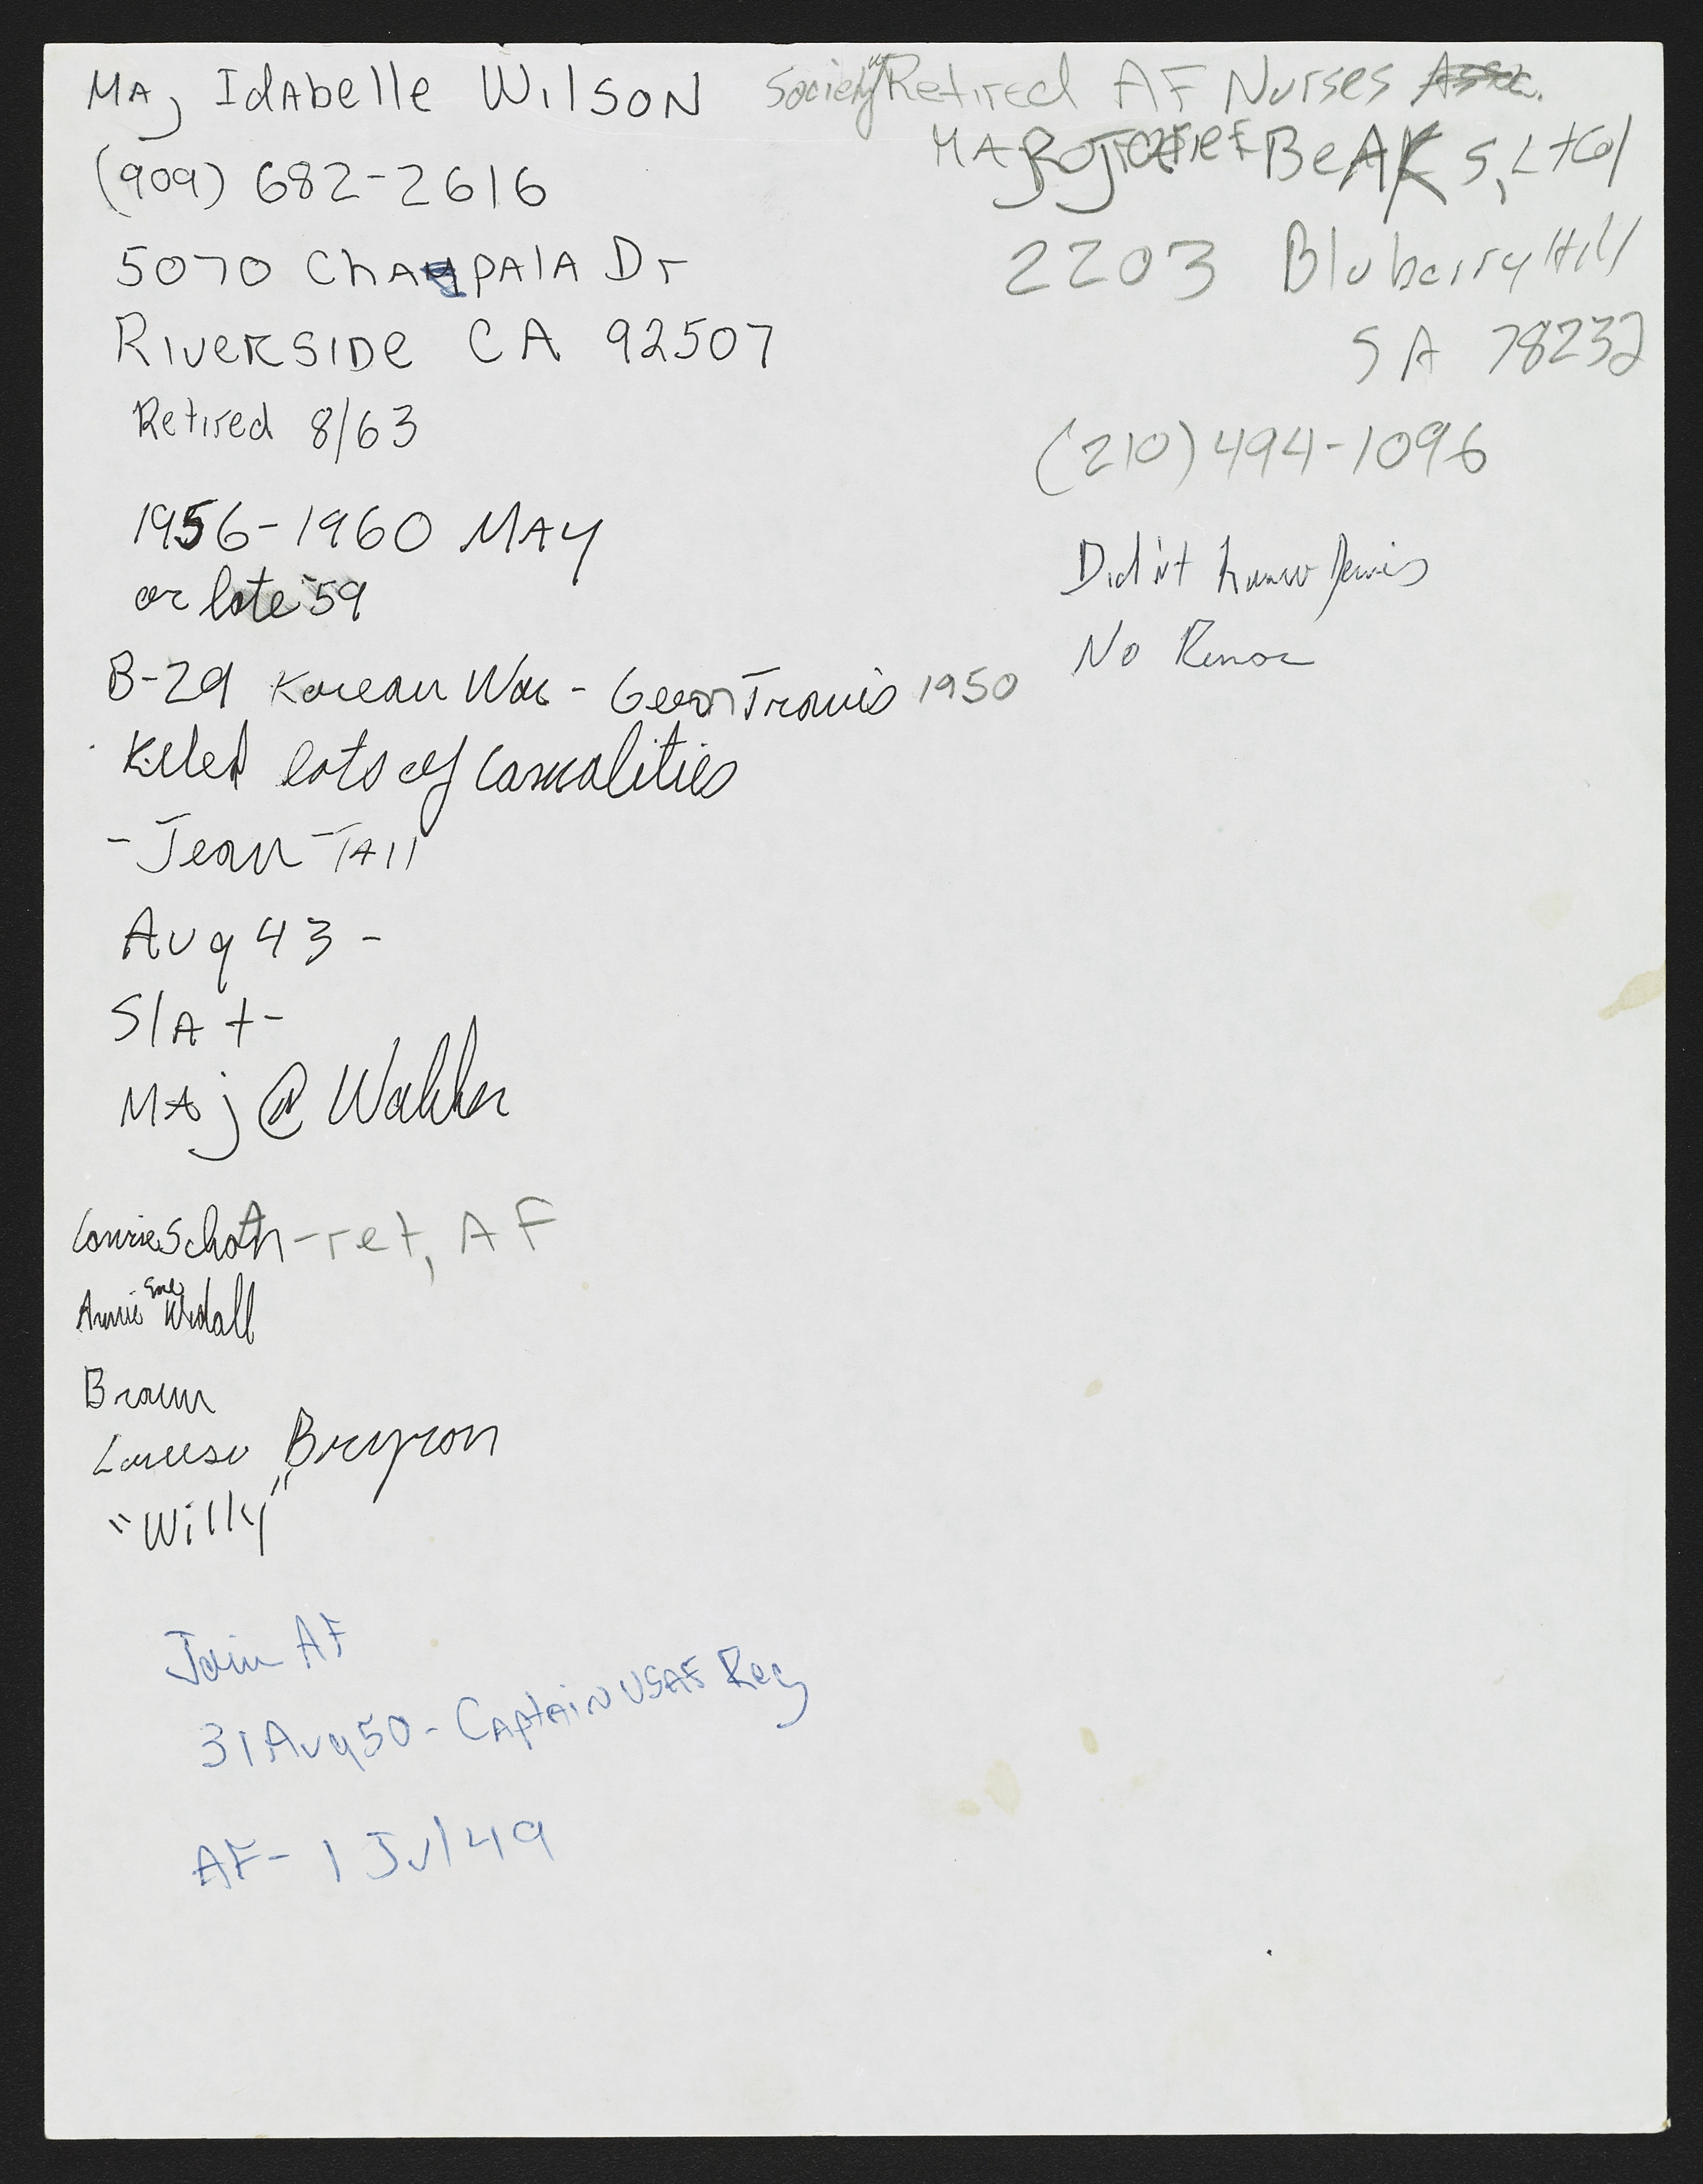 Maj Idabelle Wilson
(909) 682-2616
5070 Chapala Dr
Riverside CA 92507
Retired 8/63
1956-1960 May
or late 59
B-29 Korean War - Travis 1950
Killed lots of casualities
- Jean Tall
Aug 43 -
S/A +-
Maj @ Walker
Schoth - ret, AF
Annie
Brown
"Willy"
Join AF
31 Aug 50 - Captain USAF Reg
AF - 1 Jul 49
Society Retired AF Nurses Assc.
Beaks, Lt Col
2203 Bluberry Hill
SA 78232
(210) 494-1096
Didn't know
No